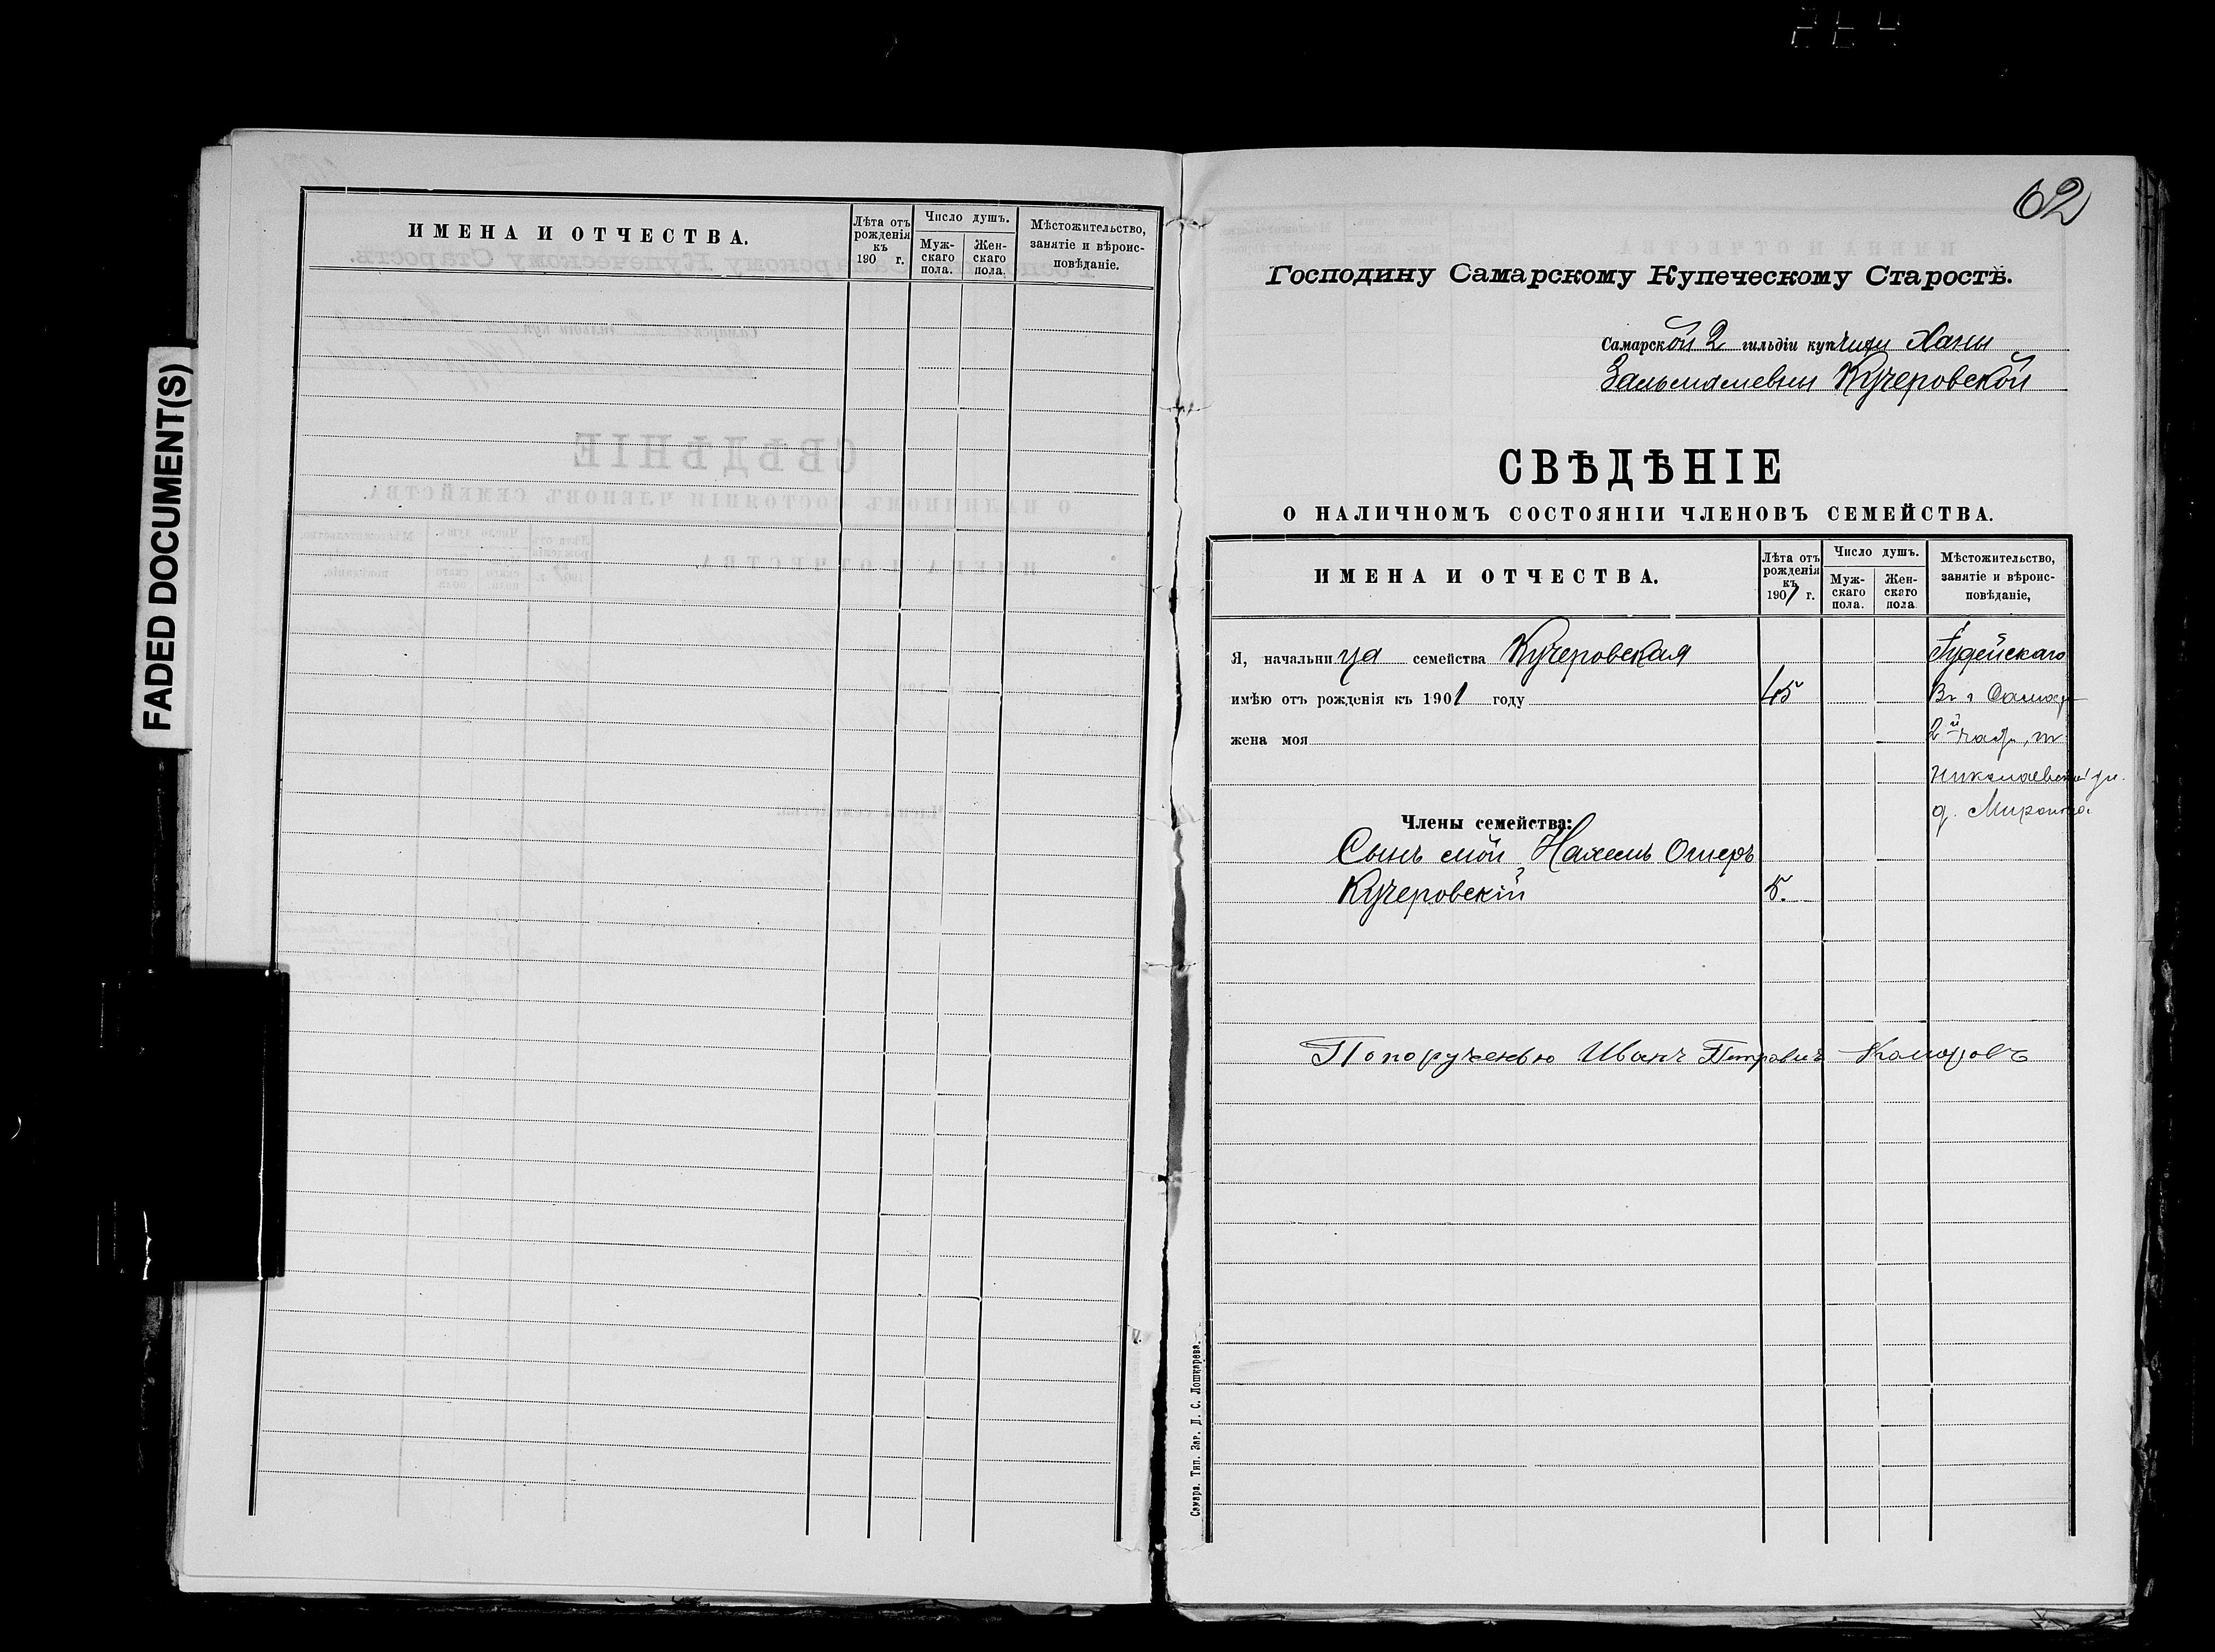 FADED DOCUMENT(S)
ИМЕНА И ОТЧЕСТВА.
Лѣта отъ рожденія къ 190 г.
Число душъ.
Муж-скаго пола.
Жен-скаго пола.
Мѣстожительство, занятіе и вѣроис-повѣданіе.
62
Господину Самарскому Купеческому Старостѣ.
Самарской 2 гильдіи купчихи Ханы
Зальмановны Кучеровской
СВѢДѢНІЕ
О НАЛИЧНОМЪ СОСТОЯНІИ ЧЛЕНОВЪ СЕМЕЙСТВА.
ИМЕНА И ОТЧЕСТВА.
Лѣта отъ рожденія къ 1901 г.
Число душъ.
Муж-скаго пола.
Жен-скаго пола
Мѣстожительство, занятіе и вѣроис-повѣданіе,
Я, начальница семейства Кучеровская Іудейскаго
имѣю отъ рожденія къ 1901 году 45 Въ г Самар
жена моя 2й части
Николаевской ул.
д.
Члены семейства:
Сынъ мой Ошеръ
Кучеровскій 5.
По порученью Иванъ Петровичъ Комаровъ
Самара. Тип. Зар. Д. С. Лошкарева.